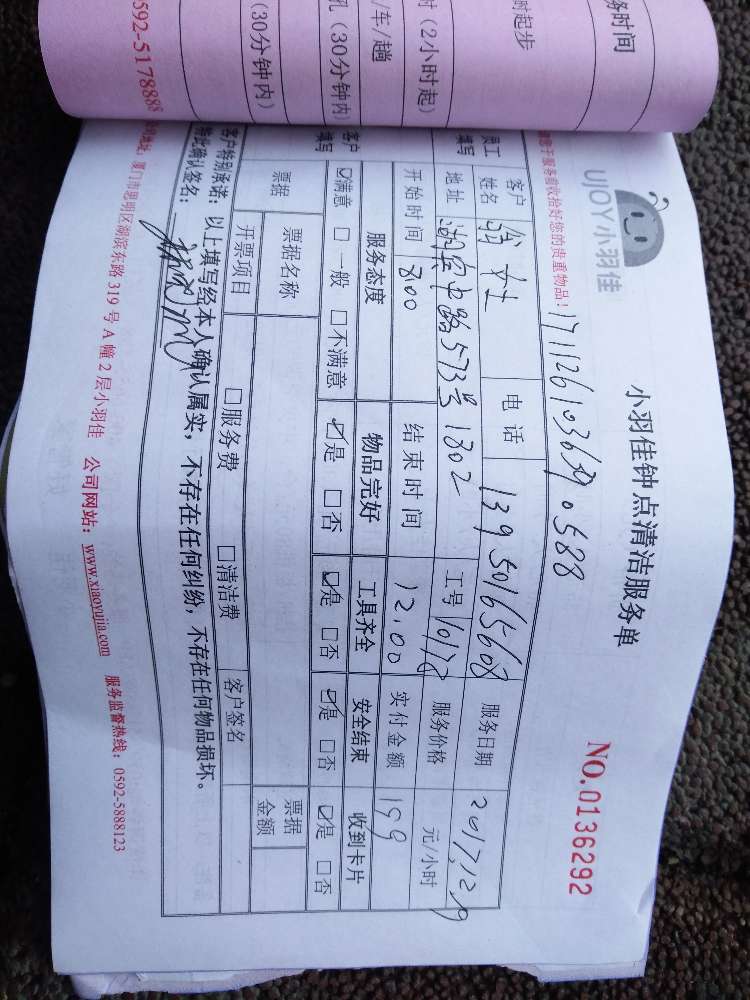 务时间
时起步
时（2小时起）
/车/趟
孔（30分钟内）
（30分钟内）
0592-5178888
UJOY小羽佳
小羽佳钟点清洁服务单
NO.0136292
您于服务前收拾好您的贵重物品！
员工
填写
客户
姓名
女士
电话
13950165608
服务日期
2017.12.9
地址
湖滨中路573号1802
工号
10178
服务价格
元/小时
开始时间
8:00
结束时间
12:00
实付金额
199
客户
填写
服务态度
物品完好
工具齐全
安全结束
收到卡片
☑满意 □一般 □不满意
☑是 □否
☑是 □否
☑是 □否
☑是 □否
票据
票据名称
票据
金额
开票项目
□服务费
□清洁费
客户签名
客户特别承诺：以上填写经本人确认属实，不存在任何纠纷，不存在任何物品损坏。
特此确认签名：
地址：厦门市思明区湖滨东路 319 号 A 幢 2 层小羽佳 公司网站：www.xiaoyujia.com 服务监督热线：0592-5888123